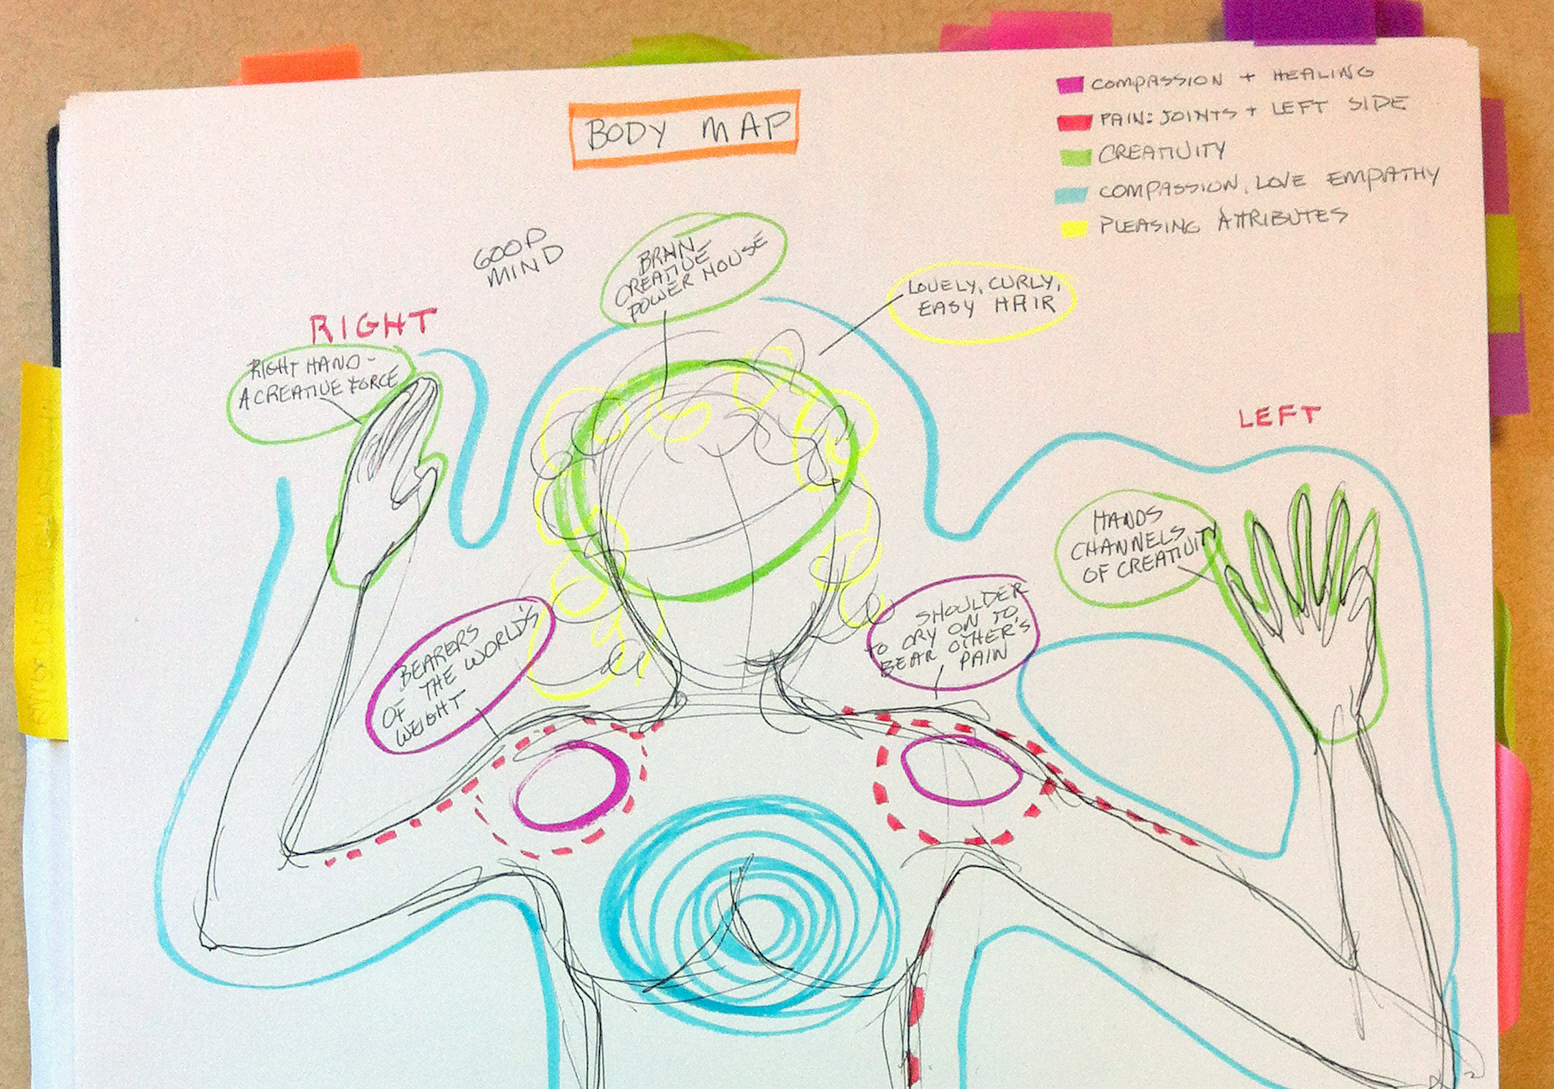 BODY MAP
COMPASSION + HEALING
PAIN: JOINTS + LEFT SIDE
CREATIVITY
COMPASSION, LOVE EMPATHY
PLEASING ATTRIBUTES
GOOD
MIND
BRAIN
CREATIVE
POWER HOUSE
LOVELY, CURLY,
EASY HAIR
RIGHT
RIGHT HAND -
A CREATIVE FORCE
LEFT
HANDS
CHANNELS
OF CREATIVITY
BEARERS
OF THE WORLD'S
WEIGHT
SHOULDER
TO CRY ON TO
BEAR OTHER'S
PAIN